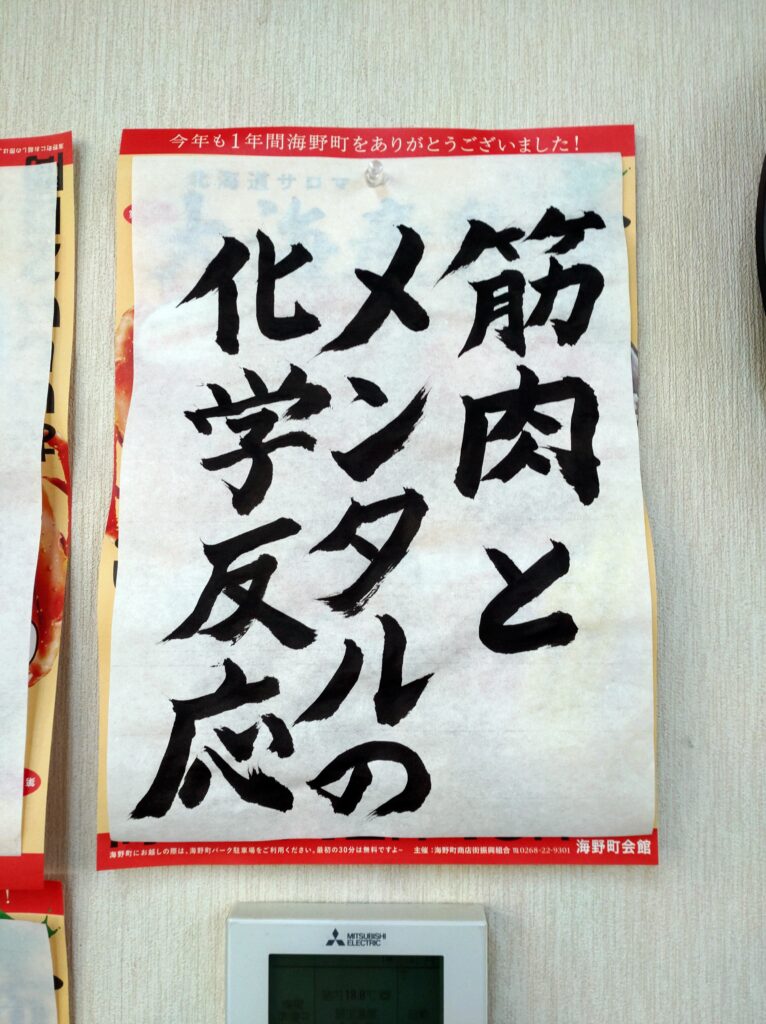 今年も1年間海野町をありがとうございました!
北海道サロマ
筋肉と
メンタルの
化学反応
海野町にお越しの際は、海野町パーク駐車場をご利用ください。最初の30分は無料ですよ~ 主催:海野町商店街振興組合 ℡0268-22-9301 海野町会館
MITSUBISHI
ELECTRIC